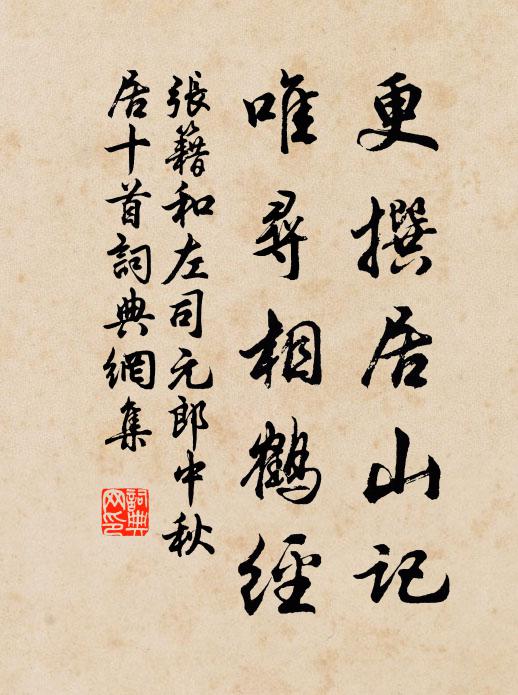 更撰居山記
唯尋相鶴經
張籍和左司元郎中秋
居十首詞典網集
詞典
网印